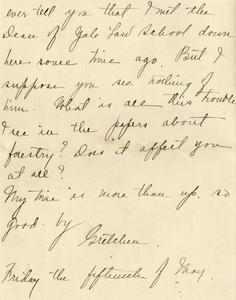 ever tell you that I met the
Dean of Yale Law School down
here some time ago. But I
suppose you see nothing of
him. What is all this trouble
I see in the papers about
forestry? Does it affect you
at all?
My time is more than up, so
good-by
Gretchen.
Friday the fifteenth of May.